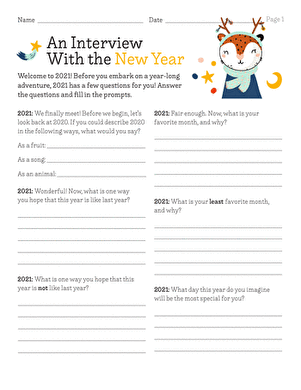 Name Date Page 1
An Interview
With the New Year
Welcome to 2021! Before you embark on a year-long
adventure, 2021 has a few questions for you! Answer
the questions and fill in the prompts.
2021: We finally meet! Before we begin, let's
look back at 2020. If you could describe 2020
in the following ways, what would you say?
As a fruit:
As a song:
As an animal:
2021: Wonderful! Now, what is one way
you hope that this year is like last year?
2021: What is one way you hope that this
year is not like last year?
2021: Fair enough. Now, what is your
favorite month, and why?
2021: What is your least favorite month,
and why?
2021: What day this year do you imagine
will be the most special for you?